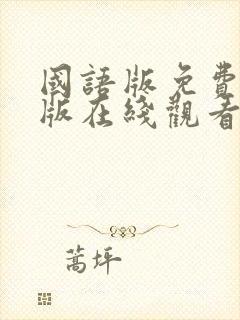 國語版免費
版在綫觀看
蒿坪